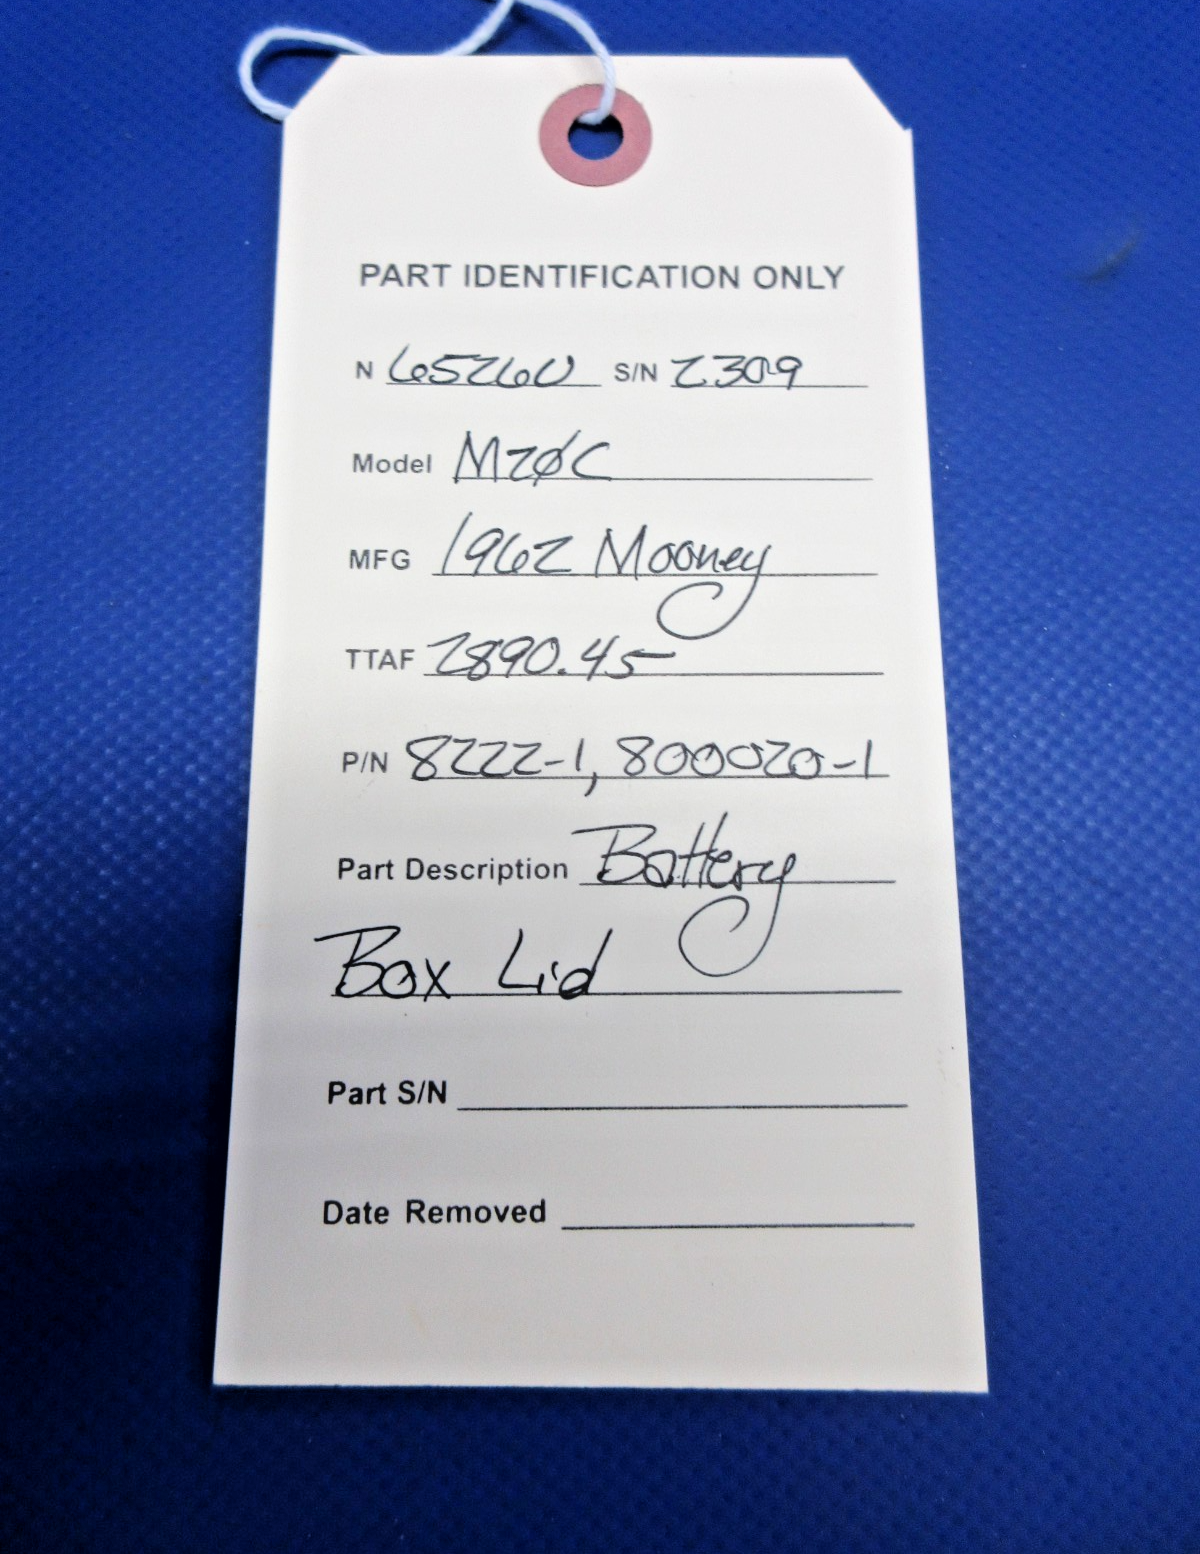 PART IDENTIFICATION ONLY
N 6526U S/N 2309
Model M20C
MFG 1962 Mooney
TTAF 2890.45
P/N 8222-1, 800020-1
Part Description Battery
Box Lid
Part S/N
Date Removed